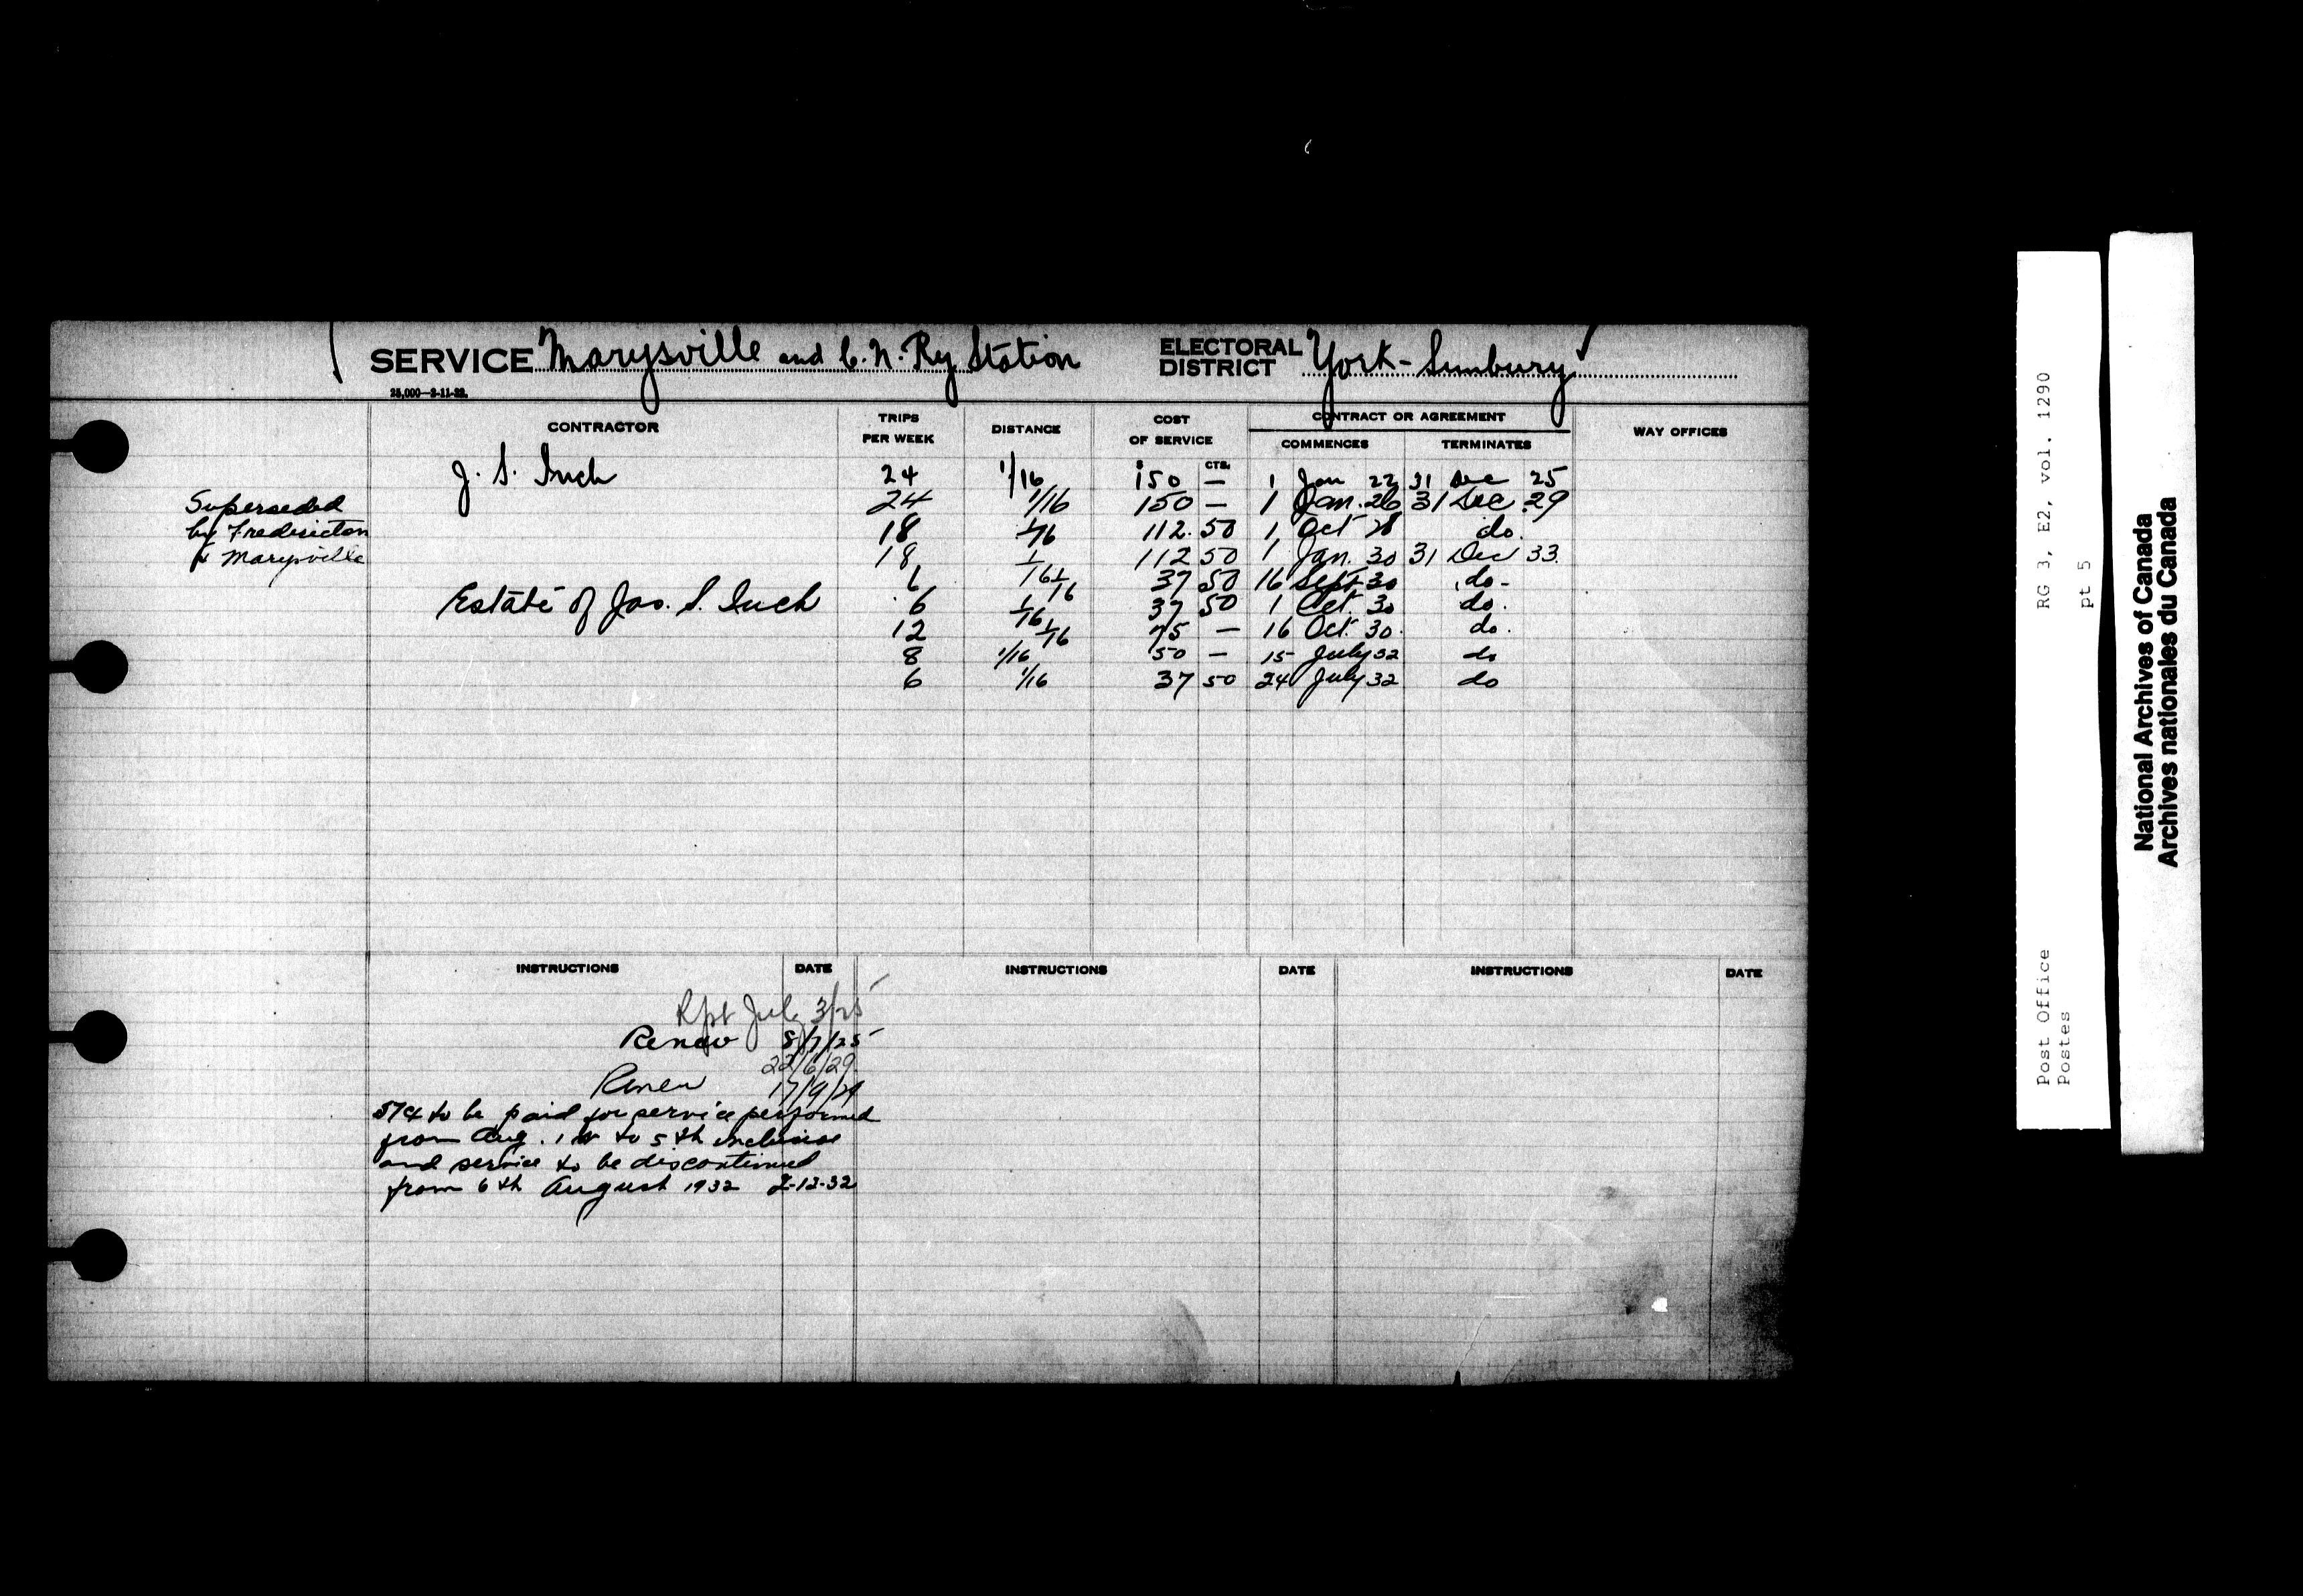 SERVICE Marysville and C. N. Ry Station ELECTORAL DISTRICT York - Sunbury
25,000—2-11-22.
CONTRACTOR TRIPS PER WEEK DISTANCE COST OF SERVICE CONTRACT OR AGREEMENT WAY OFFICES
COMMENCES TERMINATES
$ CTS.
J. S. Inch 24 1/16 150 — 1 Jan 22 31 Dec 25
24 1/16 150 — 1 Jan. 26 31 Dec 29
18 1/16 112.50 1 Oct 28 do.
18 1/16 112 50 1 Jan. 30 31 Dec 33
6 1/16 37 50 16 Sept 30 do -
Estate of Jas. S. Inch 6 1/16 37 50 1 Oct. 30 do.
12 1/16 75 — 16 Oct. 30. do.
8 1/16 50 — 15 July 32 do
6 1/16 37 50 24 July 32 do
Superseded
by Fredericton
& Marysville
INSTRUCTIONS DATE INSTRUCTIONS DATE INSTRUCTIONS DATE
Rpt July 3/25
Renew 8/7/25
22/6/29
Renew 17/9/29
57¢ to be paid for service performed
from Aug. 1st to 5th inclusive
and service to be discontinued
from 6th August 1932 2-12-32
Post Office RG 3, E2, vol. 1290
Postes pt 5
National Archives of Canada
Archives nationales du Canada